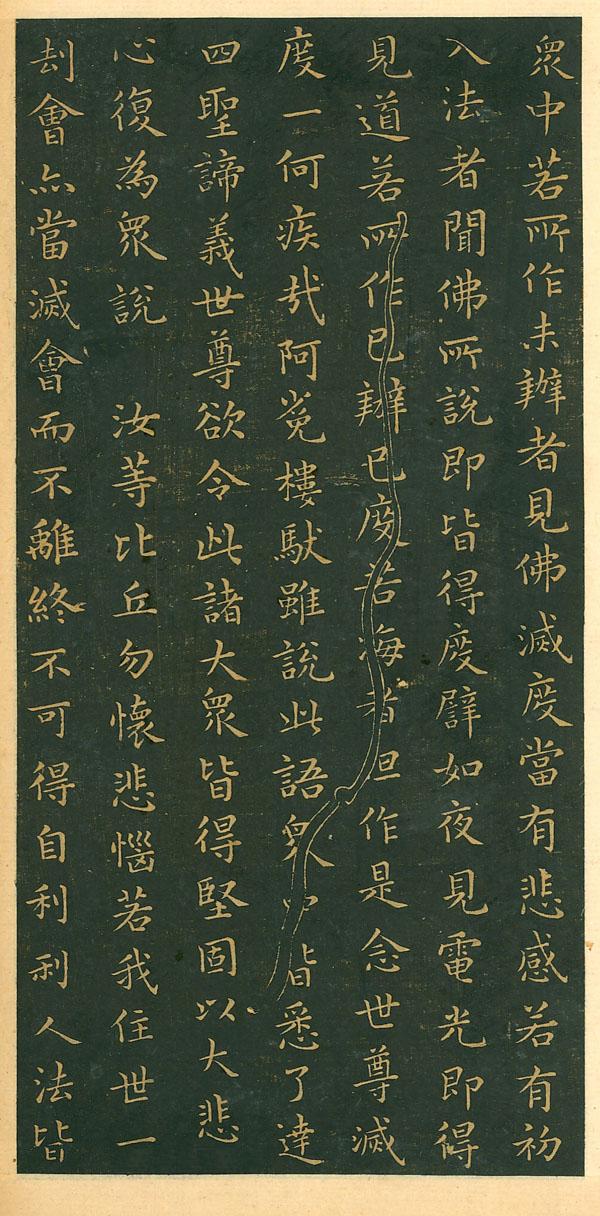 衆中若所作未辦者見佛滅度當有悲感若有初
入法者聞佛所說即皆得度譬如夜見電光即得
見道若所作已辦已度苦海者但作是念世尊滅
度一何疾哉阿㝹樓馱雖說此語衆中皆悉了達
四聖諦義世尊欲令此諸大衆皆得堅固以大悲
心復為衆說　汝等比丘勿懷悲惱若我住世一
刼會亦當滅會而不離終不可得自利利人法皆